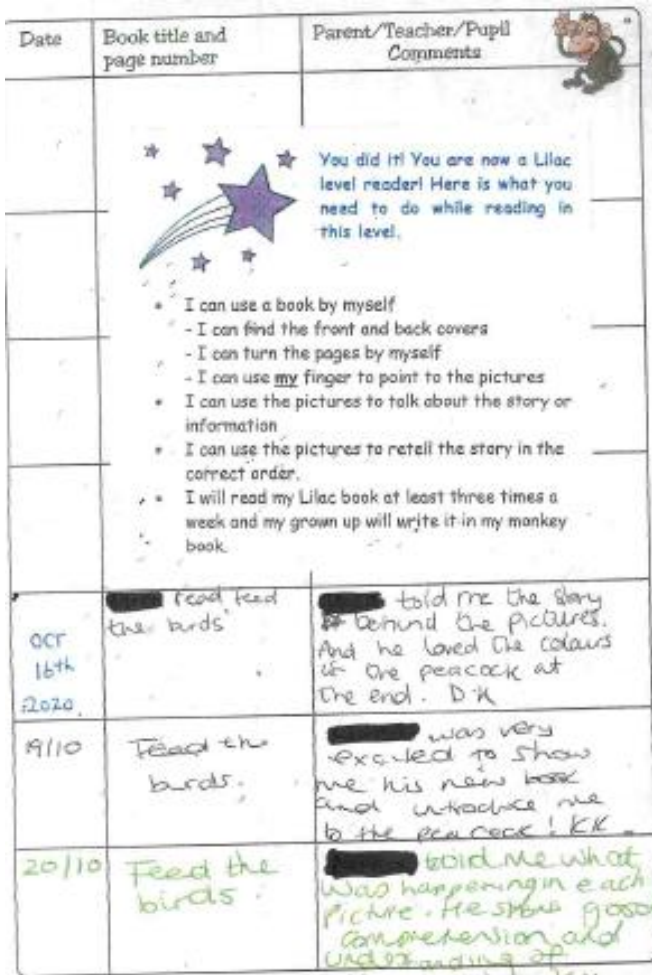 Date
Book title and
page number
Parent/Teacher/Pupil
Comments
You did it! You are now a Lilac
level reader! Here is what you
need to do while reading in
this level.
• I can use a book by myself
- I can find the front and back covers
- I can turn the pages by myself
- I can use my finger to point to the pictures
• I can use the pictures to talk about the story or
information
• I can use the pictures to retell the story in the
correct order.
• I will read my Lilac book at least three times a
week and my grown up will write it in my monkey
book.
OCT
16th
2020
read feed
the birds
told me the story
behind the pictures.
And he loved the colours
of the peacock at
the end. D.K
19/10
Feed the
birds.
was very
excited to show
me his new book
and introduce me
to the peacock! KK
20/10
Feed the
birds.
told me what
was happening in each
picture. He shows good
comprehension and
understanding of